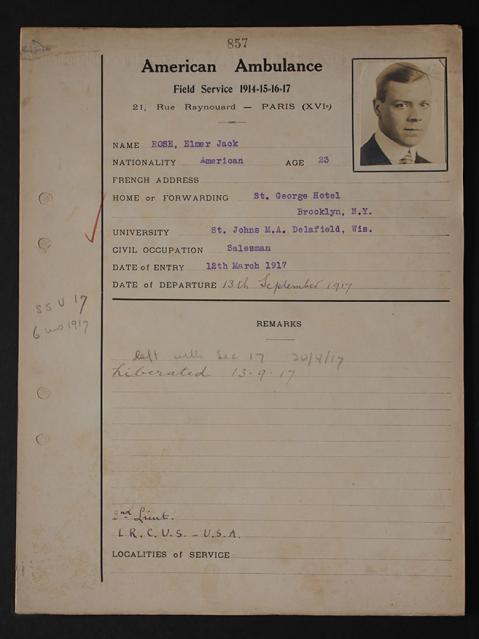 857
American Ambulance
Field Service 1914-15-16-17
21, Rue Raynouard — PARIS (XVIe)
NAME ROSE, Elmer Jack
NATIONALITY American AGE 23
FRENCH ADDRESS
HOME or FORWARDING St. George Hotel
Brooklyn, N.Y.
UNIVERSITY St. Johns M.A. Delafield, Wis.
CIVIL OCCUPATION Salesman
DATE of ENTRY 12th March 1917
DATE of DEPARTURE 13th September 1917
SSU 17
6 mos 1917
REMARKS
left with Sec 17 30/4/17
Liberated 13-9-17
2nd Lieut.
L.R.C.U.S. - U.S.A.
LOCALITIES of SERVICE